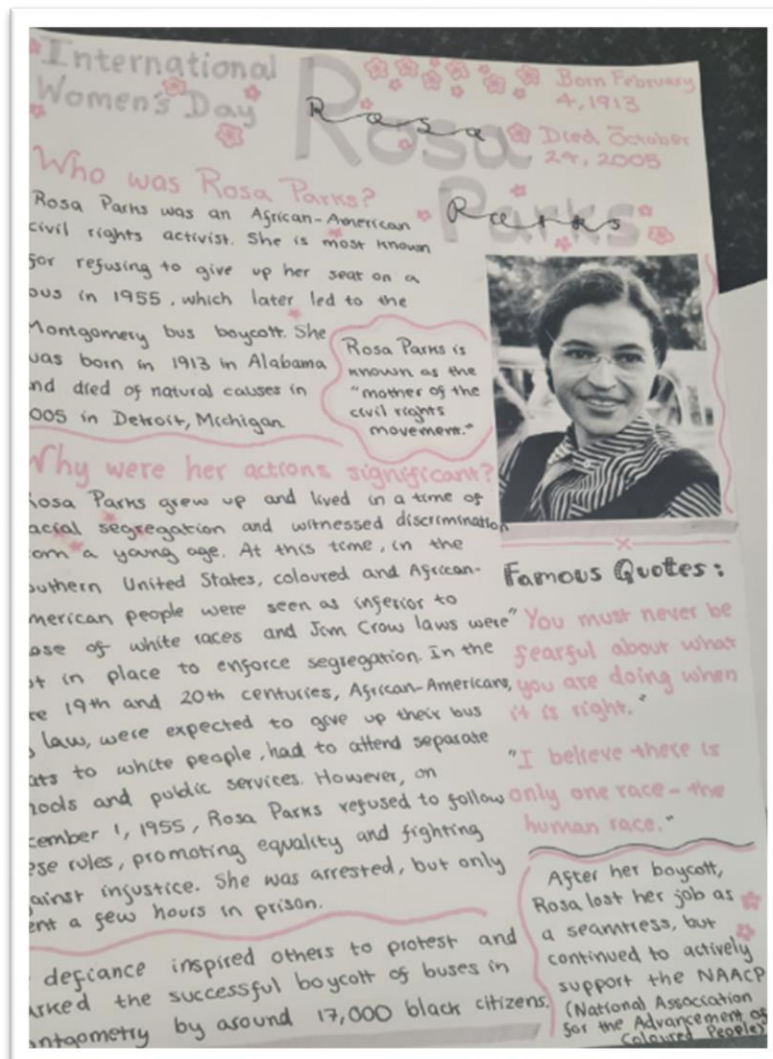 International
Women's Day
Rosa
Rosa
Parks
Parks
Born February
4, 1913
Died October
24, 2005
Who was Rosa Parks?
Rosa Parks was an African-American
civil rights activist. She is most known
for refusing to give up her seat on a
bus in 1955, which later led to the
Montgomery bus boycott. She
was born in 1913 in Alabama
nd died of natural causes in
005 in Detroit, Michigan
Rosa Parks is
known as the
"mother of the
civil rights
movement."
Why were her actions significant?
Rosa Parks grew up and lived in a time of
acial segregation and witnessed discrimination
om a young age. At this time, in the
outhern United States, coloured and African-
merican people were seen as inferior to
ose of white races and Jim Crow laws were
t in place to enforce segregation. In the
te 19th and 20th centuries, African-Americans,
law, were expected to give up their bus
ats to white people, had to attend separate
hools and public services. However, on
cember 1, 1955, Rosa Parks refused to follow
ese rules, promoting equality and fighting
ainst injustice. She was arrested, but only
ent a few hours in prison.
defiance inspired others to protest and
arked the successful boycott of buses in
ontgometry by around 17,000 black citizens.
Famous Quotes:
"You must never be
fearful about what
you are doing when
it is right."
"I believe there is
only one race - the
human race."
After her boycott,
Rosa lost her job as
a seamtress, but
continued to actively
support the NAACP
(National Association
for the Advancement of
Coloured People)